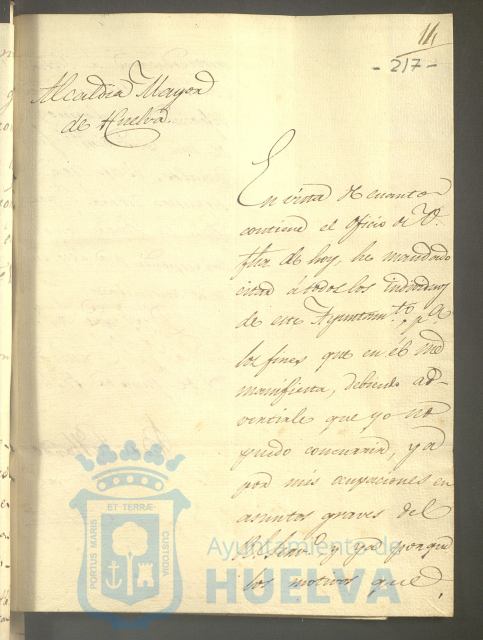 11,
- 217 -
Alcaldía Mayor
de Huelva.
En vista de cuanto
contiene el oficio de V.
de hoy, he mandado
citar á todos los individuos
de este Ayuntam.to p.a
los fines que en él me
manifiesta, debiendo ad-
vertirle que yo no
puedo concurrir, ya
por mis ocupaciones en
asuntos graves del
R.l Serv.o y ya porque
los motivos que
PORTUS MARIS ET TERRÆ CUSTODIA
Ayuntamiento de
HUELVA